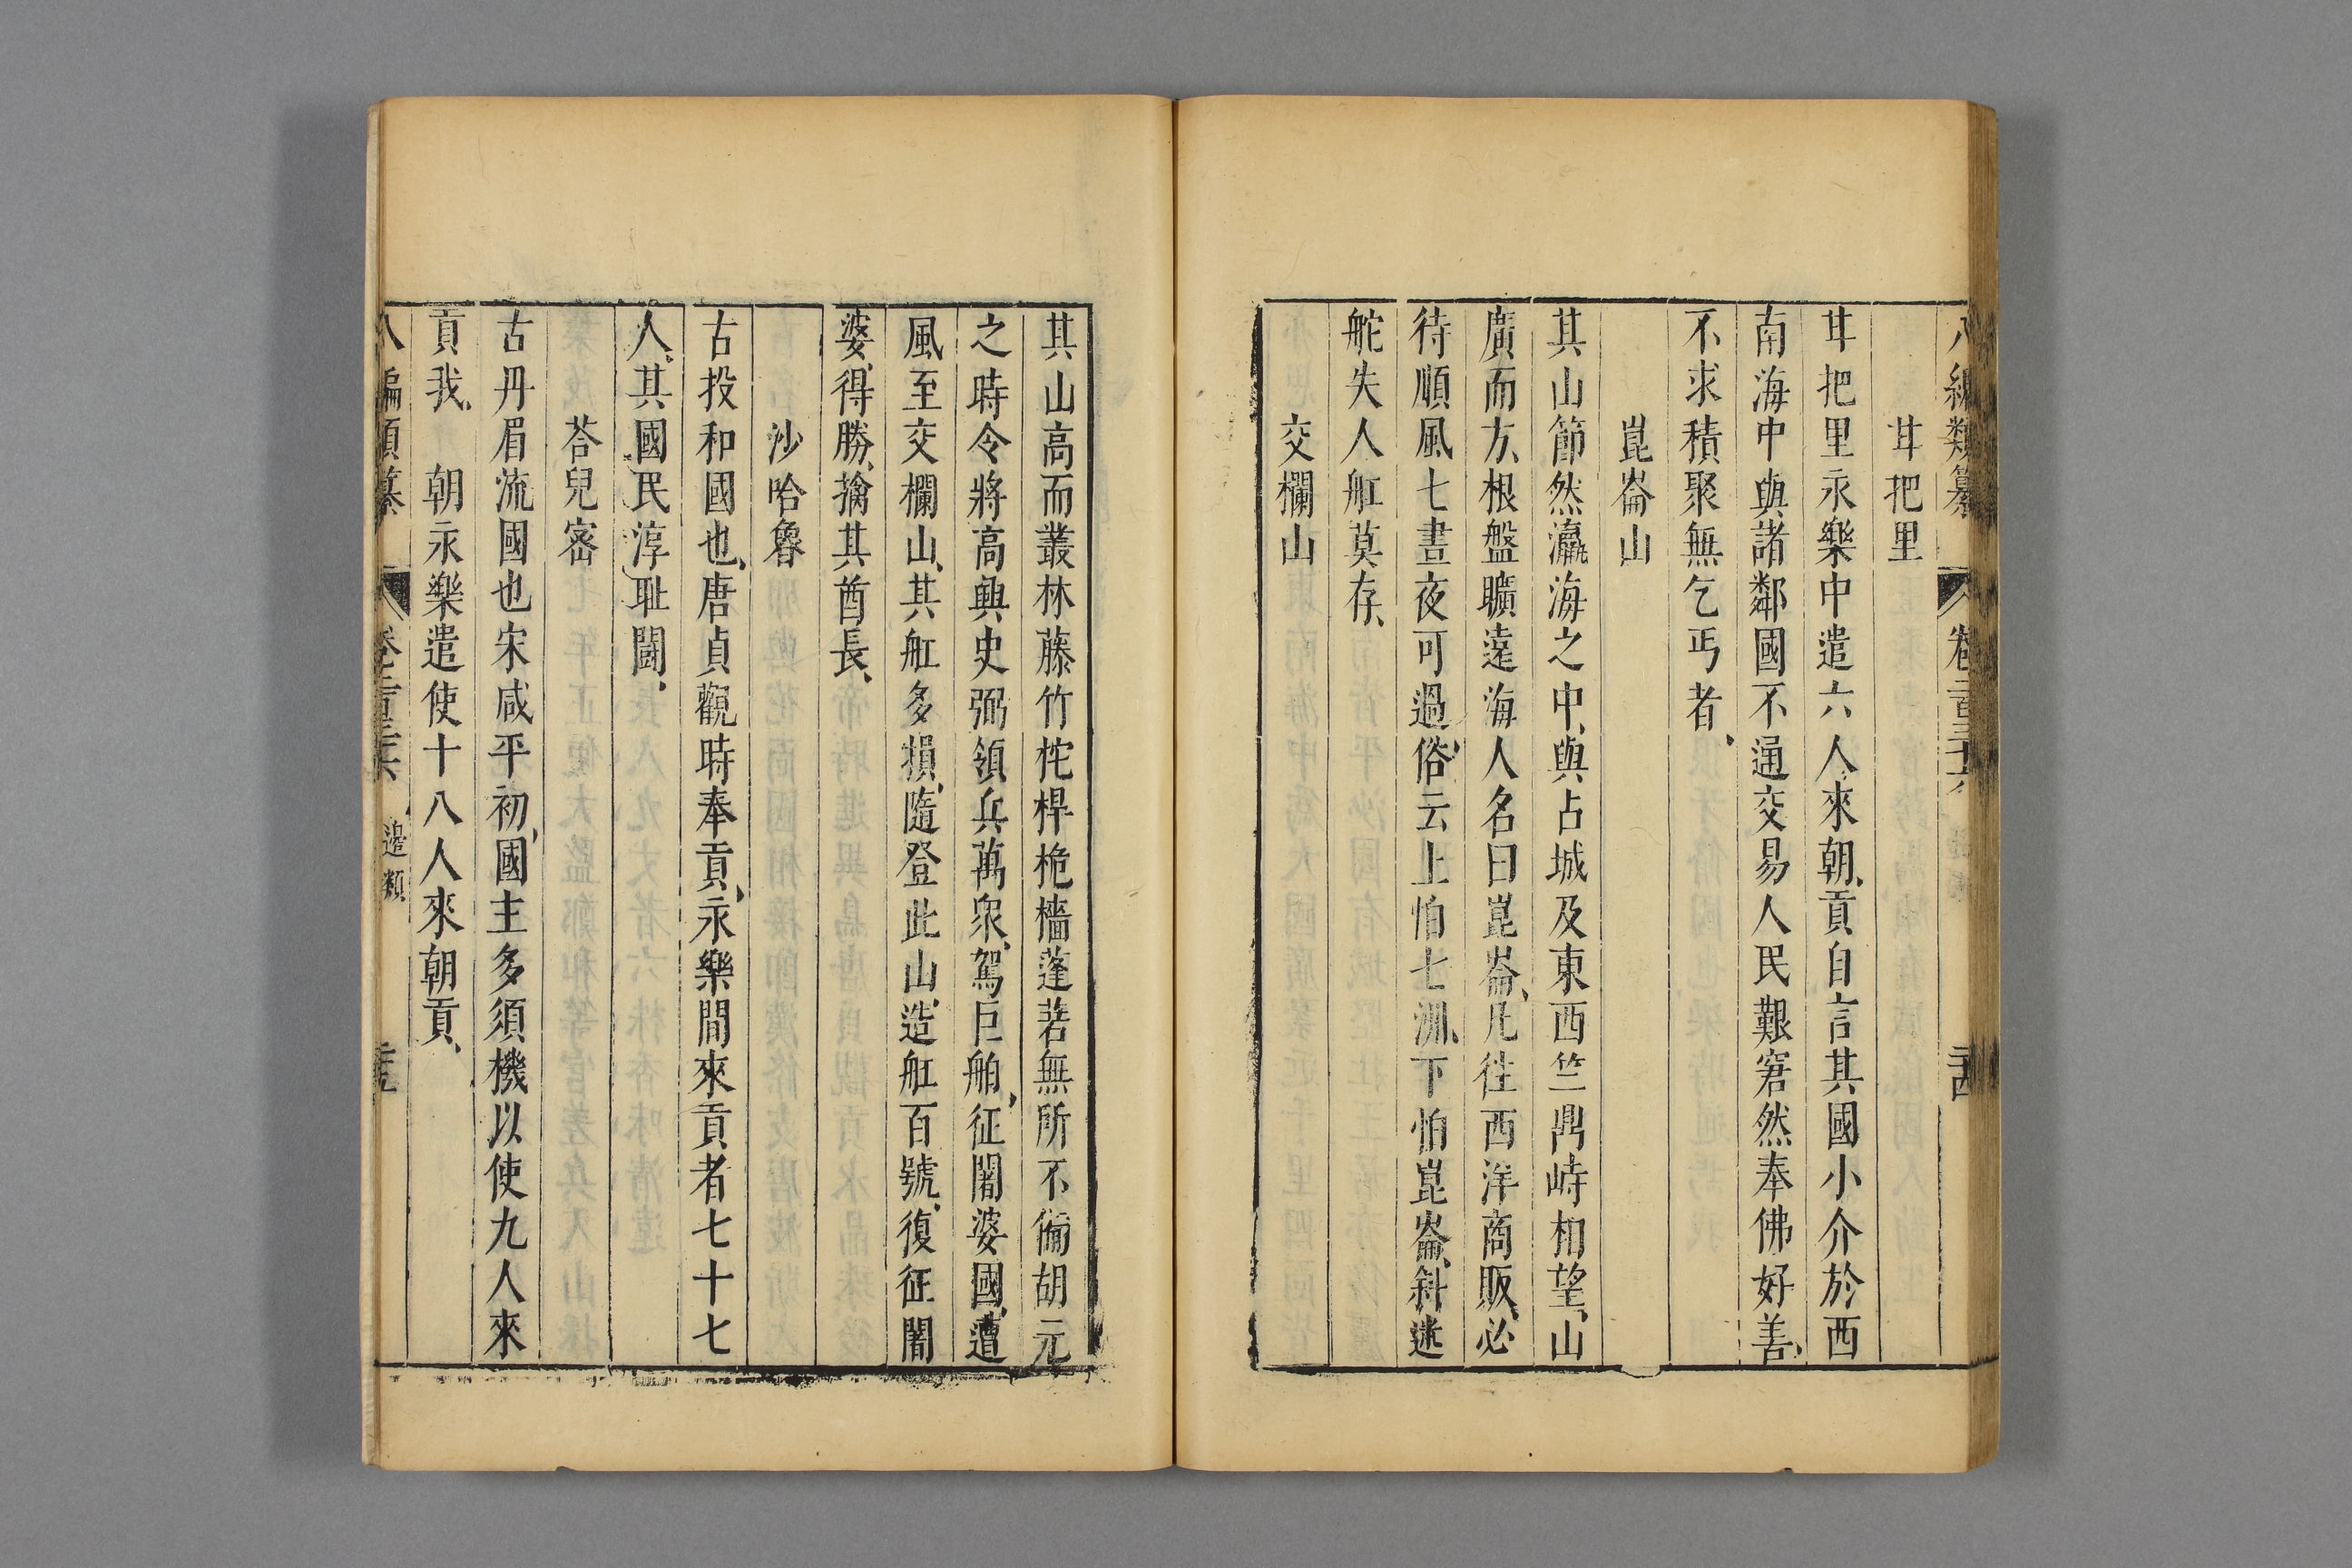 八編類纂 卷二百三十六 二十四
甘把里
甘把里永樂中遣六人來朝貢自言其國小介於西
南海中與諸鄰國不通交易人民艱窘然奉佛好善
不求積聚無乞丐者
崑崙山
其山節然瀛海之中與占城及東西竺鼎峙相望山
廣而方根盤曠遠海人名曰崑崙凡往西洋商販必
待順風七晝夜可過俗云上怕七洲下怕崑崙針迷
舵失人舡莫存
交欄山
其山高而叢林藤竹柁桿桅檣蓬箬無所不備胡元
之時令將高興史弼領兵萬衆駕巨舶征闍婆國遭
風至交欄山其舡多損隨登此山造舡百號復征闍
婆得勝擒其酋長
沙哈魯
古投和國也唐貞觀時奉貢永樂間來貢者七十七
人其國民淳耻鬪
荅兒宻
古丹眉流國也宋咸平初國主多須機以使九人來
貢我 朝永樂遣使十八人來朝貢
八編類纂 卷二百三十六 邊類